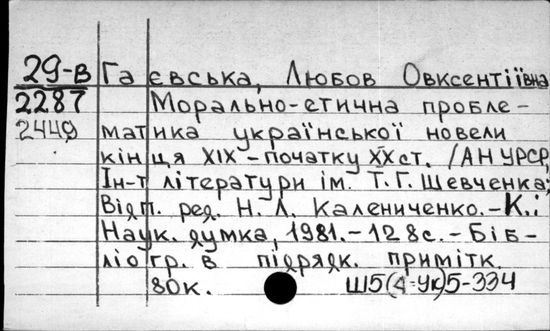 29-в Гаєвська, Любов Овксентіївна
2287 Морально-етична пробле-
2449 матика української новели
кінця XIX - початку XX ст. /АН УРСР,
Ін-т літератури ім. Т.Г. Шевченка;
Відп. ред. Н.Л. Калениченко. - К.:
Наук. думка, 1981. - 128с. - Біб-
ліогр. в підрядк. примітк.
80к. Ш5(4=Ук)5-334